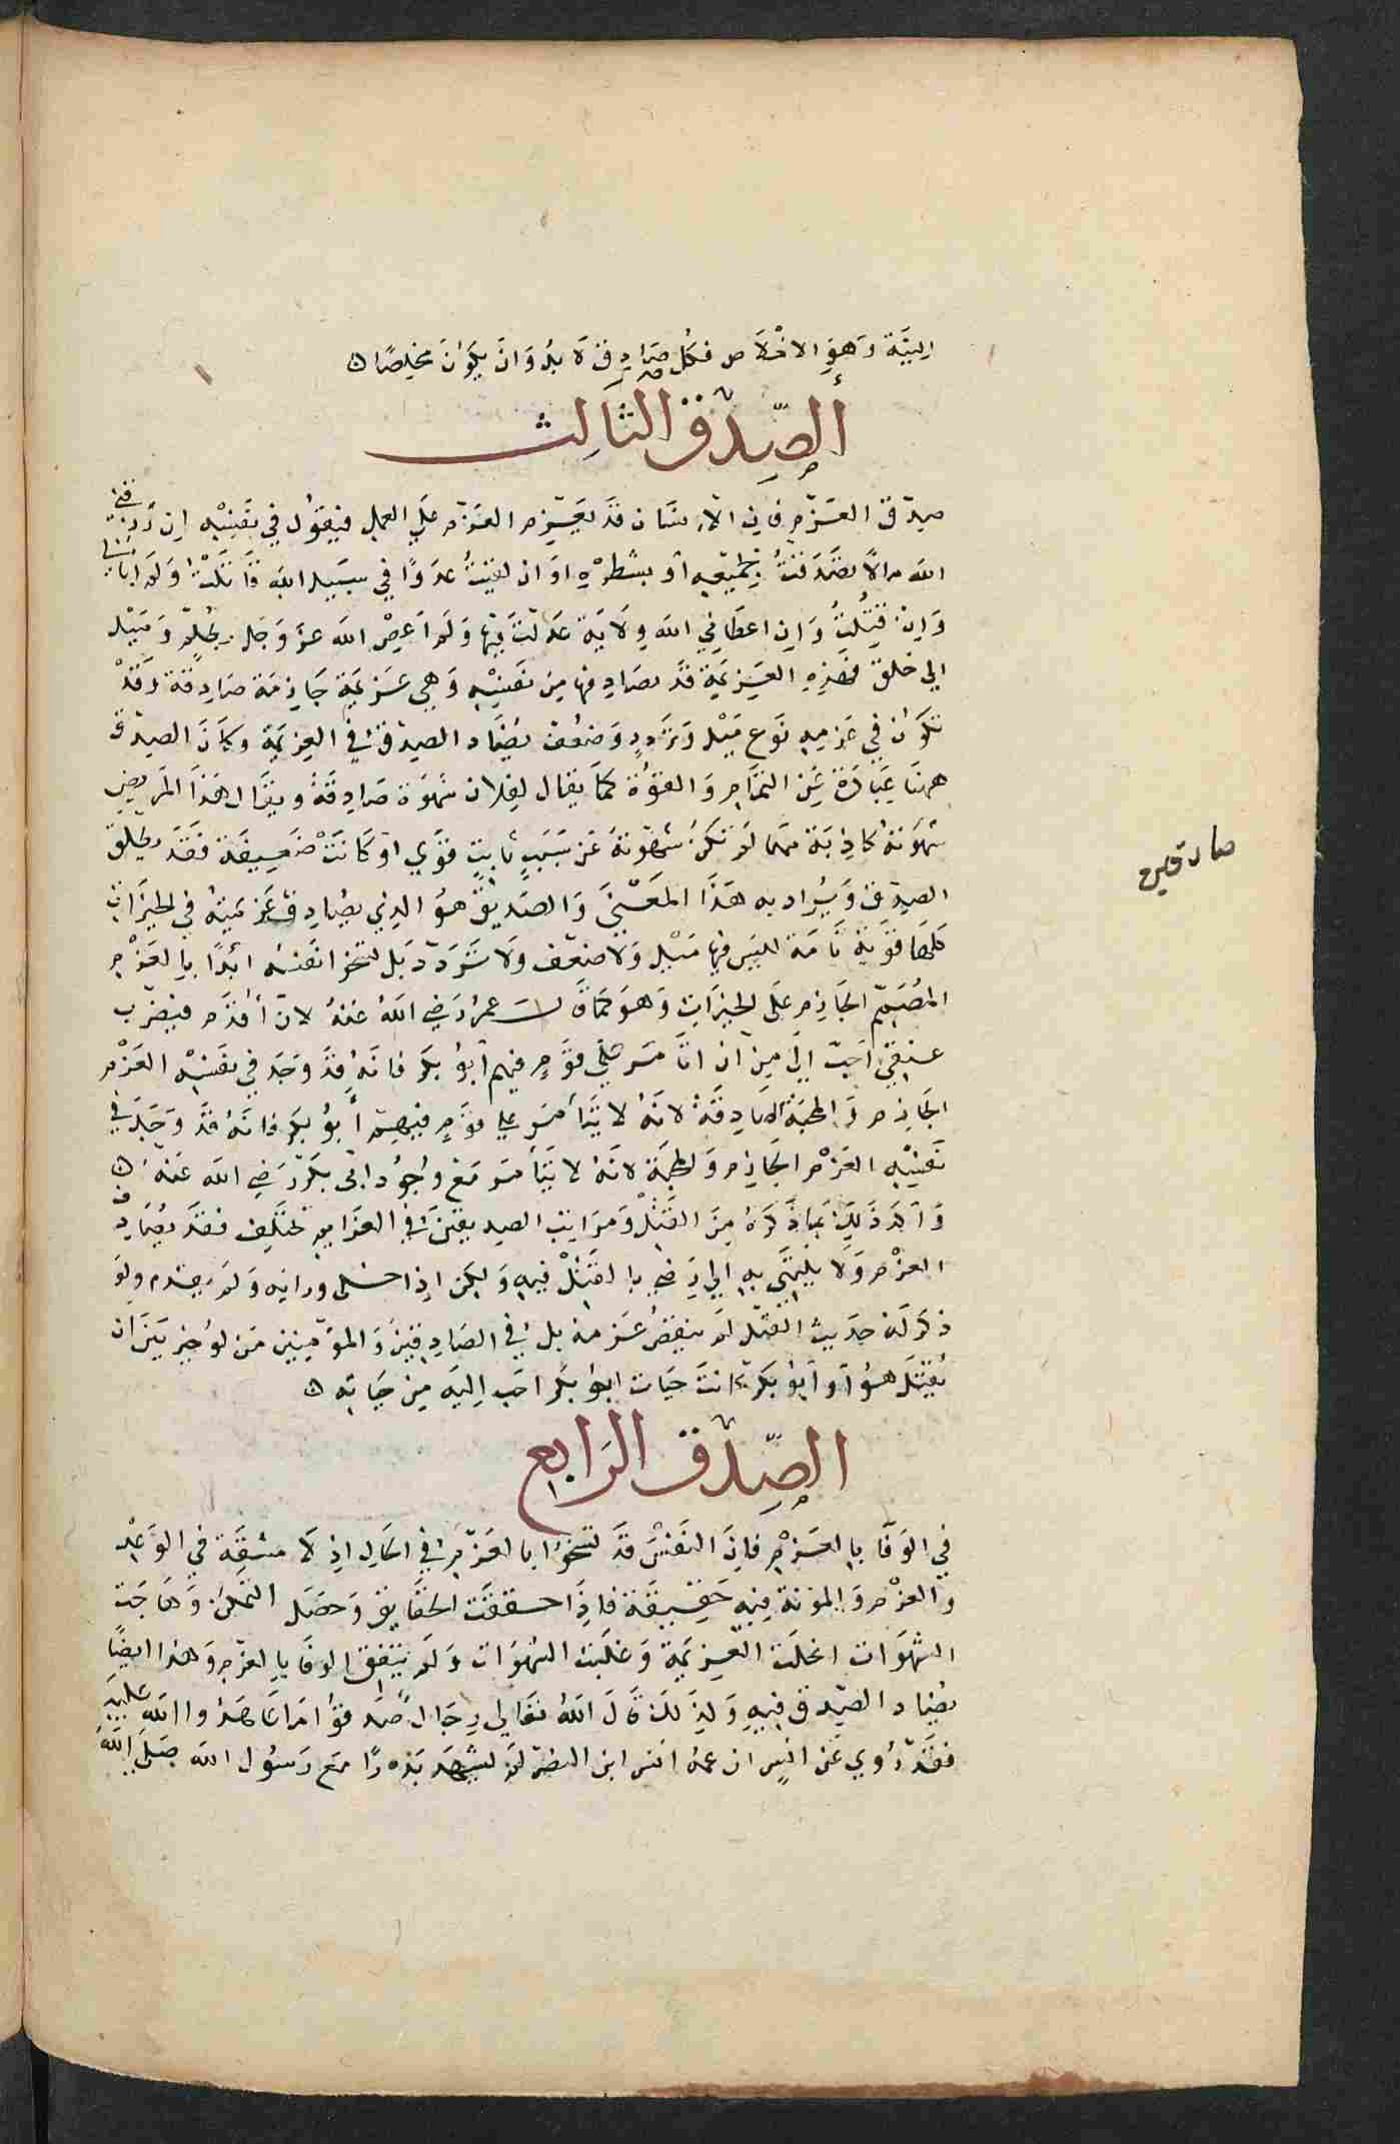 النيّة وَهوَ الاخْلاَص فكل صَادِق لاَ بدّ وَانَ يكوَن مخلِصًا ۞
ألصِّدْق الثالِث
صِدق العَزْم فان الاِنسَان قدَ يَعزم العَزْم عَلي العمل فيَقوُل في نَفسِه اِن رَزقني
الله مالاً تصَدَقتُ بجَميعه أو بشطرْهِ اوَ ان لقيتُ عدوًا في سَبيل الله قَاتلتُ وَلم ابَالي
وَاِن قُتِلتُ وَاِن اعطَاني الله وِلاَية عدَلتَ فيهَا وَلم اَعصِ الله عزَ وَجَل بظلم وَميْل
الي خلق فهَذِهِ العَزيمَة قد يصَادِفها مِن نَفسِه وَهي عَزيمَة جَازمَة صَادِقة وَقدْ
تكوَن في عَزمِه نوَع مَيْل وَترَددٍ وَضعُف يضَاد الصِدق في العَزيمة وكاَنَ الصِدق
ههنَا عِبَارة عَن التمَام وَالقوُة كما يقال لِفلان شهوَة صَادِقَةُ ويقَال هَذَا المَريض
شهوَتهُ كاذبَة مهما لم تكن شهوَتهُ عَن سَبَبٍ ثَابتٍ قوَي اوَ كانَتْ ضَعيفَة فَقَد يطلق
الصِدق وَيُراد به هَذَا المَعْنيَ وَالصَديق هوُ الذِي يصَادِف عَزيمتهُ في الخيرَات
كلهَا قوَية تَامة ليسَ فيهَا مَيْل وَلا ضعَف وَلا ترَددّ بَل تسخوا نَفسَه ابَدًا بالعَزْم
المصُمَم الجَازم عَلى الخيرَات وَهوَ كمَا قَالَ عمرُ رَضي الله عَنهُ لانْ أقدَم فيضرَب
عنقي احَبّ اِلَي مِن ان اتَأمَر عَلي قوَم فيهم أبوُ بكر فانَهُ قدَ وَجَد في نَفسِه العَزْم
الجَازم وَالمحبَة الصَادِقَةْ لانَهُ لا يَتَأمَر علي قوَم فيهِم أبوُ بكر فانَهُ قَدَ وَجَدَ في
نَفسِه العَزْم الجَازم وَالمحبَة لانَهُ لا يتَأمر مَع وجُوُد ابي بكر رَضي الله عَنهُ ۞
وَاكد ذَلِكَ بماَ ذَكرهُ مِنَ القتْل وَمرَاتِب الصديقينَ في العَزايم تختَلِف فقدَ يصُادف
العزْم وَلا ينتهَي به الي ان يرَضي بالقتلْ فيهِ وَلكِن اذا خلى ورايه وَلم يقدم ولوَ
ذكر لَه حدَيث القتل لم ينقض عَزمه بل في الصَادقينَ وَالمؤمِنين مَن لوُ خيرَ بَين ان
يُقتَل هوُ أو أبوُ بكر كانتَ حيَات ابوُ بكر احَب اليهَ مِن حيَاته ۞
الصِّدْق الرَابع
في الوَفا بالعَزم فانَ النفَسْ قدَ تسخوُا بالعَزم في الحَال اذ لاَ مشقة في الوَعْد
والعزْم وَالمؤنة فيه خَفيفَة فاذِا حققَت الحقَايق وَحصَل التمكن وَهَاجَت
الشهوَات انحلَت العَزيمَة وَغلبَت الشهوَات وَلم يتفق الوفَا بالعزم وَهذا ايضًا
يضَاد الصّدق فيهِ وَلذَلكَ قَالَ اللهُ تعَالى رِجَالُ صَدقوُا مَا عَاهَدُوا الله عليَه
فقَد رُوي عَن انسٍ ان عمهُ انس ابن النضر لمَ يشهَد بَدْرًا مَع رَسُول الله صَلى اللهُ
صادقين